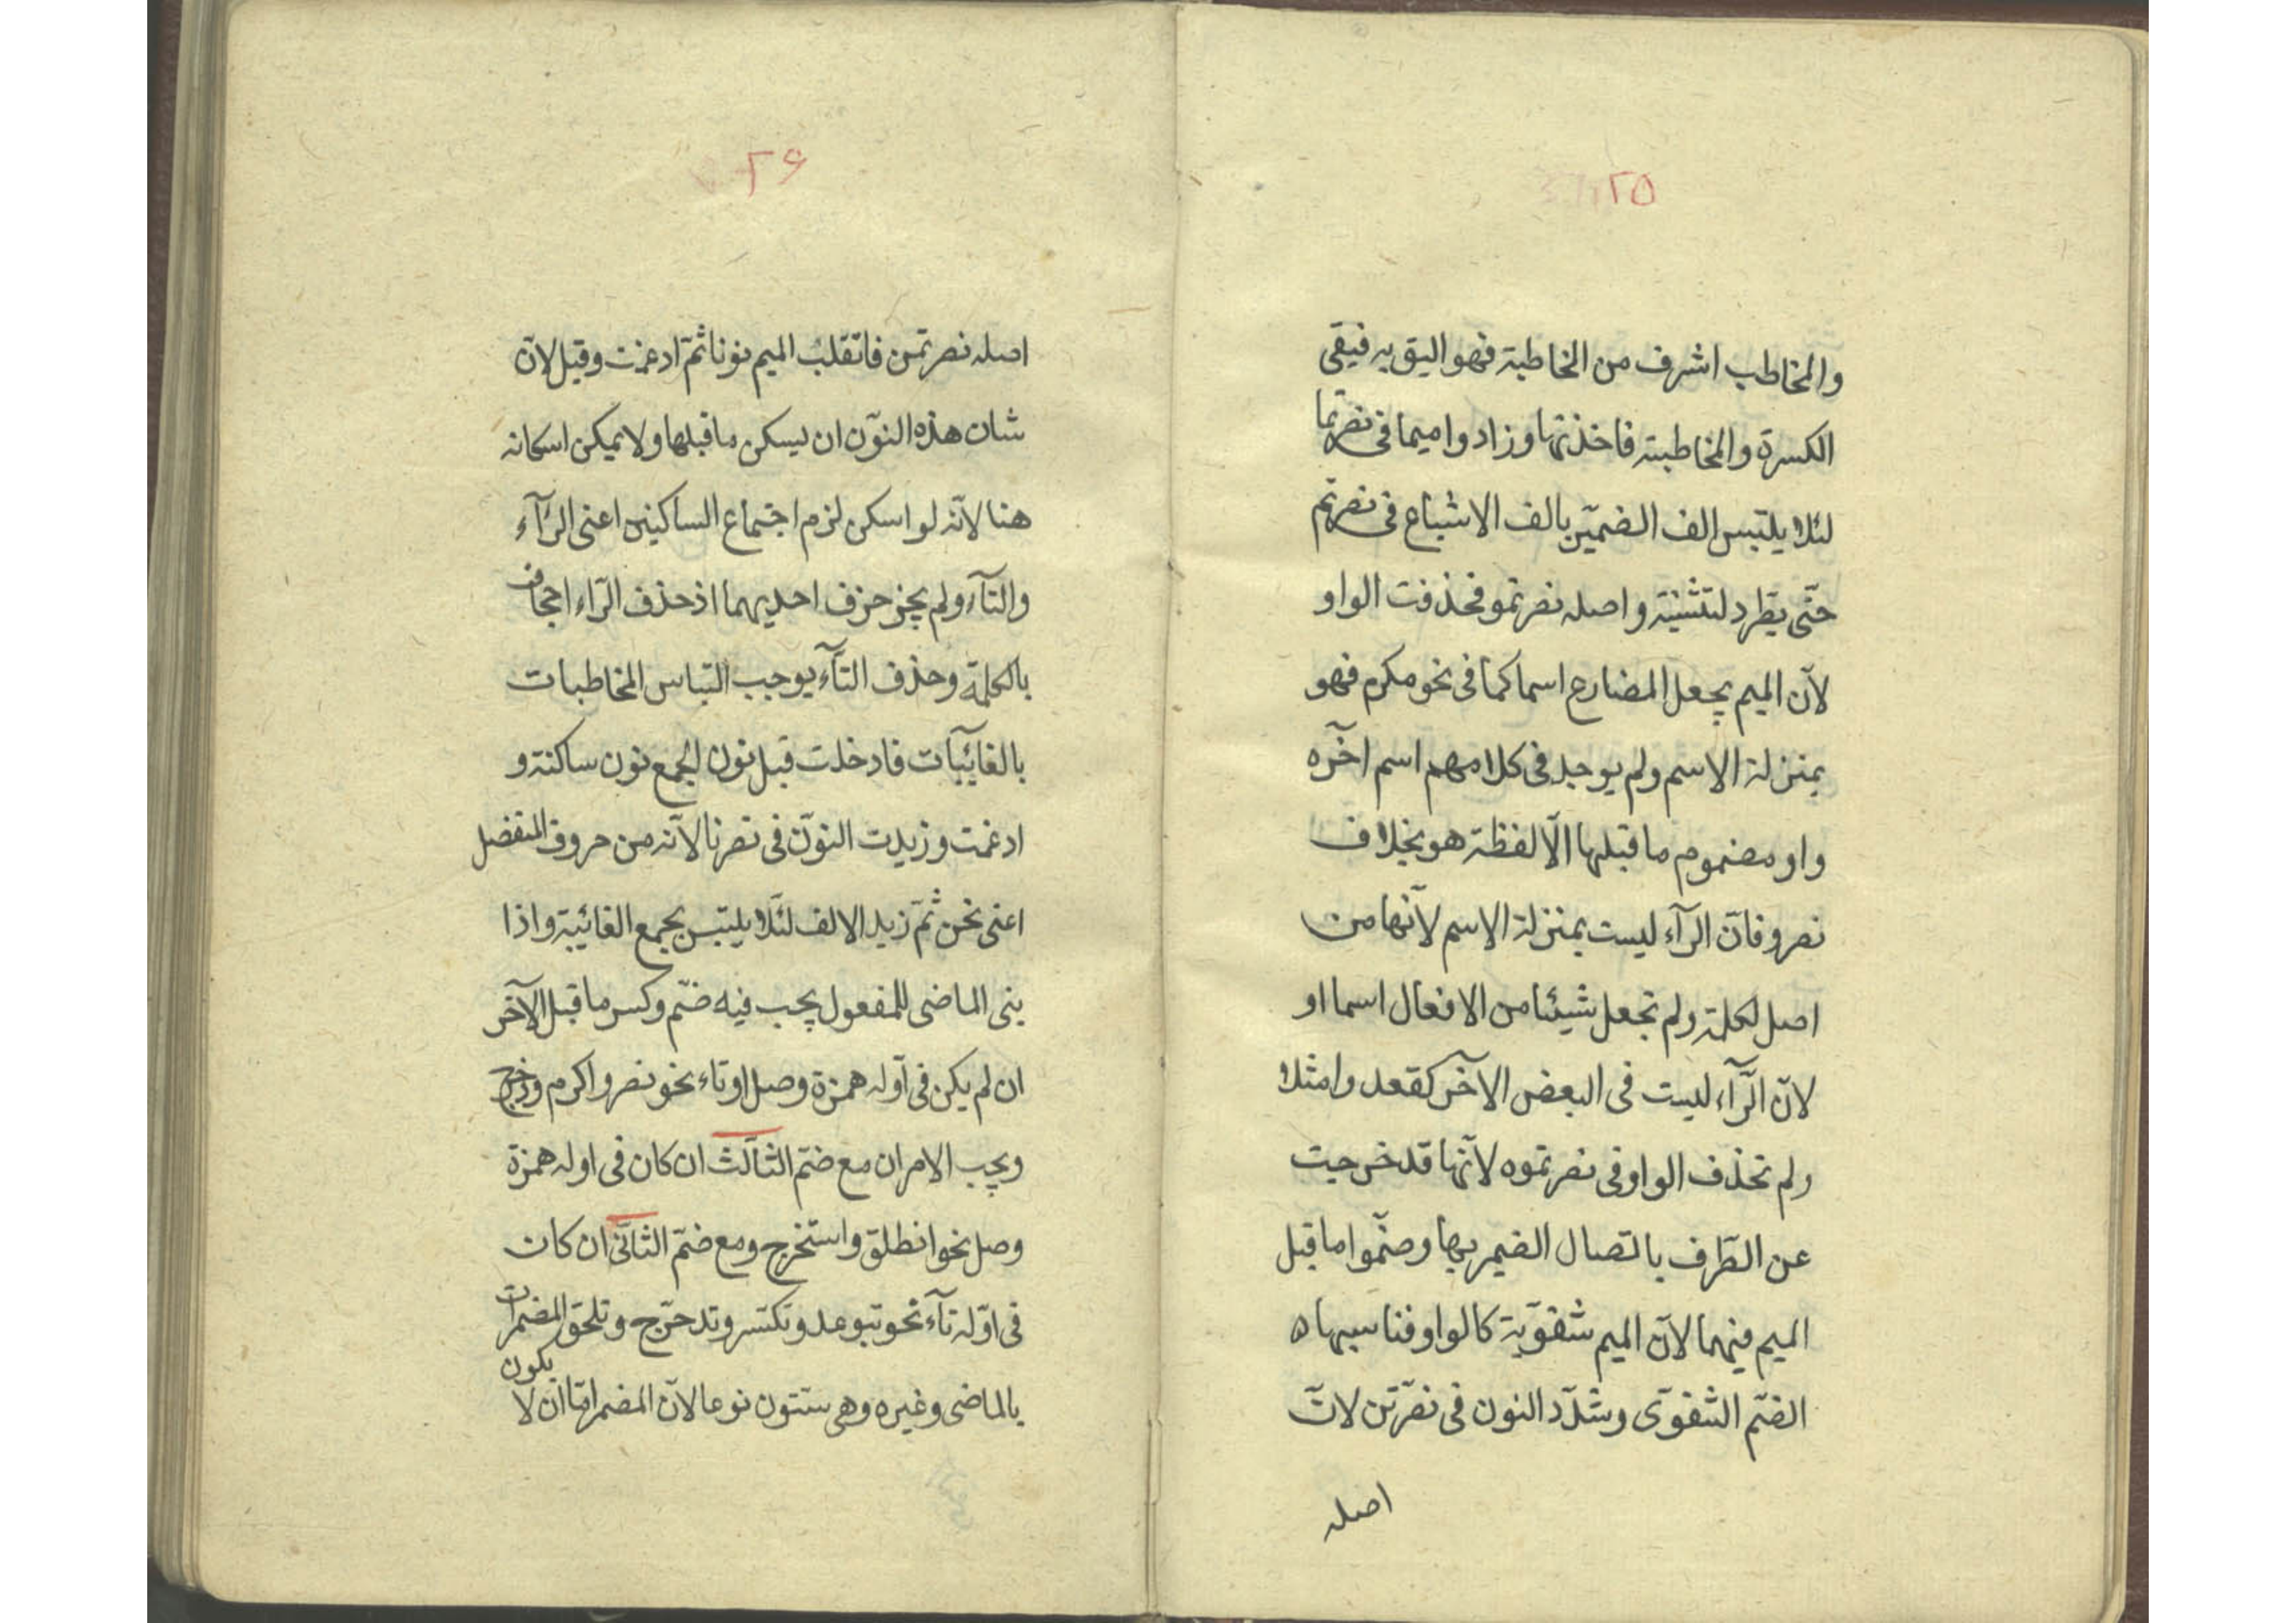 ٢٥
والمخاطب اشرف من المخاطبة فهو اليق به فيقى
الكسرة والمخاطبة فاخذتها وزادوا ميما فى نصرتما
لئلا يلتبس الف الضميّر بالف الاشباع فى نصرتم
حتّى يطّرد لتثنية واصله نصرتمو فحذفت الواو
لانّ الميم يجعل المضارع اسما كما فى نحو مكرم فهو
بمنزلة الاسم ولم يوجد فى كلامهم اسم اخٓره
واو مضموم ما قبلها الّا لفظة هو بخلاف
نصروا فانّ الرآء ليست بمنزلة الاسم لانّها من
اصل لكلمة ولم تجعل شيئا من الافعال اسما او
لانّ الرّآء ليست فى البعض الآخر كقعد وا مثلا
ولم تحذف الواو فى نصرتموه لانّها قد خرجت
عن الطّرف باتصال الضمير بها وضمّوا ما قبل
الميم فيهما لانّ الميم شفوّية كالواو فناسبها ه
الضمّ الشفوّى وشدّد النون فى نصرّتن لانّ
اصله
٢۶
اصله نصرتمن فانّقلب الميم نونا ثمّ ادغمت وقيل لانّ
شان هذه النوّن ان ليسكن ما قبلها ولا يمكن اسكانه
هنا لانّه لو اسكن لزم اجتماع الساكنين اعنى الرّآء
والتآء ولم يجز حزف احديهما اذ حذف الرّاء اجحاف
بالكلمة وحذف التآّء يوجب التباس المخاطبات
بالغائيبآت فادخلت قبل نون الجمع نون ساكنة و
ادغمت وزيدت النوّن فى نصرنا لانّه من حروف المنفضل
اعنى نحن ثمّ زيد الالف لئلّا يلتبس بجمع الغائيبة واذا
بنى الماضى للمفعول يجب فيه ضمّ وكسر ما قبل الآخر
ان لم يكن فى اوّله همزة وصل او تاء نحو نصر واكرم ودخرج
ويجب الامران مع ضمّ الثالّث ان كان فى اوله همزة
وصل نحو انطلق واستخرج ومع ضمّ الثانّى ان كان
فى اوّله تآء نحو تبوعد وتكسّر وتدحرّج وتلحق المضمرات
بالماضى وغيره وهى ستّون نوعا لانّ المضمر امّا ان لا يكون